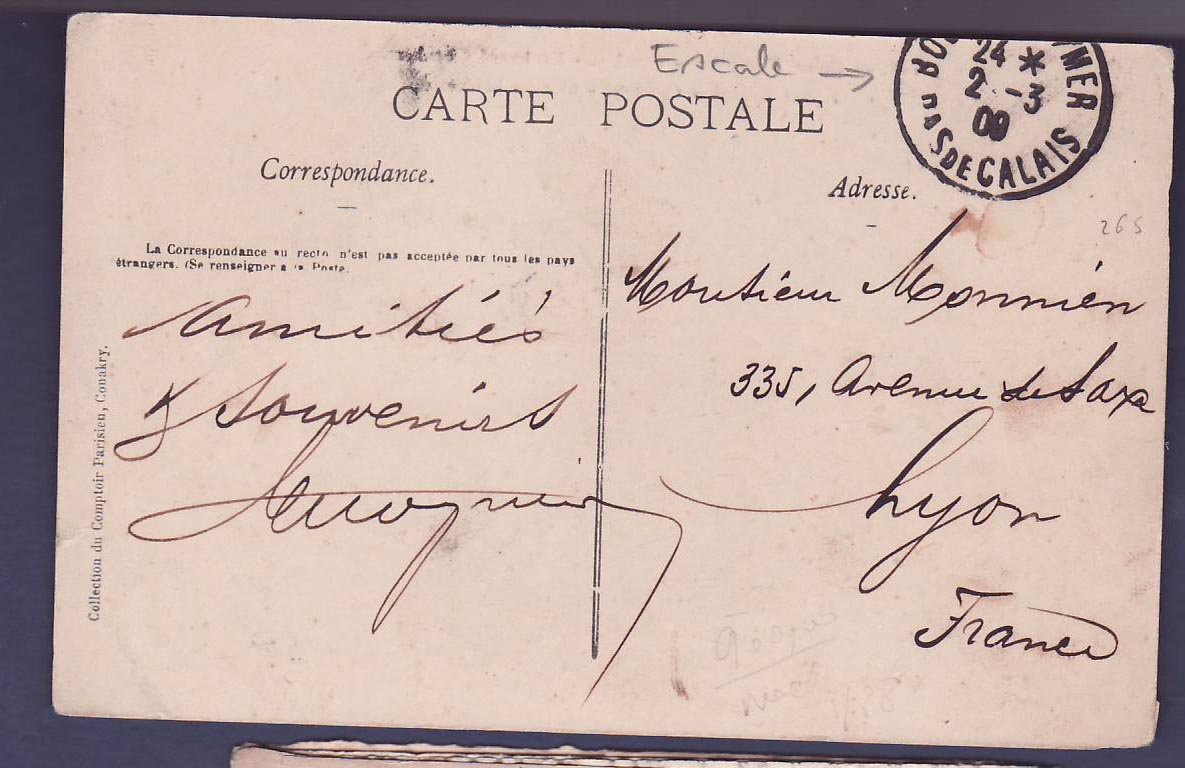 Escale →
CARTE POSTALE
24 *
2 -3
09
PAS DE CALAIS
Correspondance.
Adresse.
265
La Correspondance au recto n'est pas acceptée par tous les pays
étrangers. (Se renseigner à la Poste.
Amitiés
& Souvenirs
Monsieur Monnier
335, Avenue de Saxe
Lyon
France
Collection du Comptoir Parisien, Conakry.